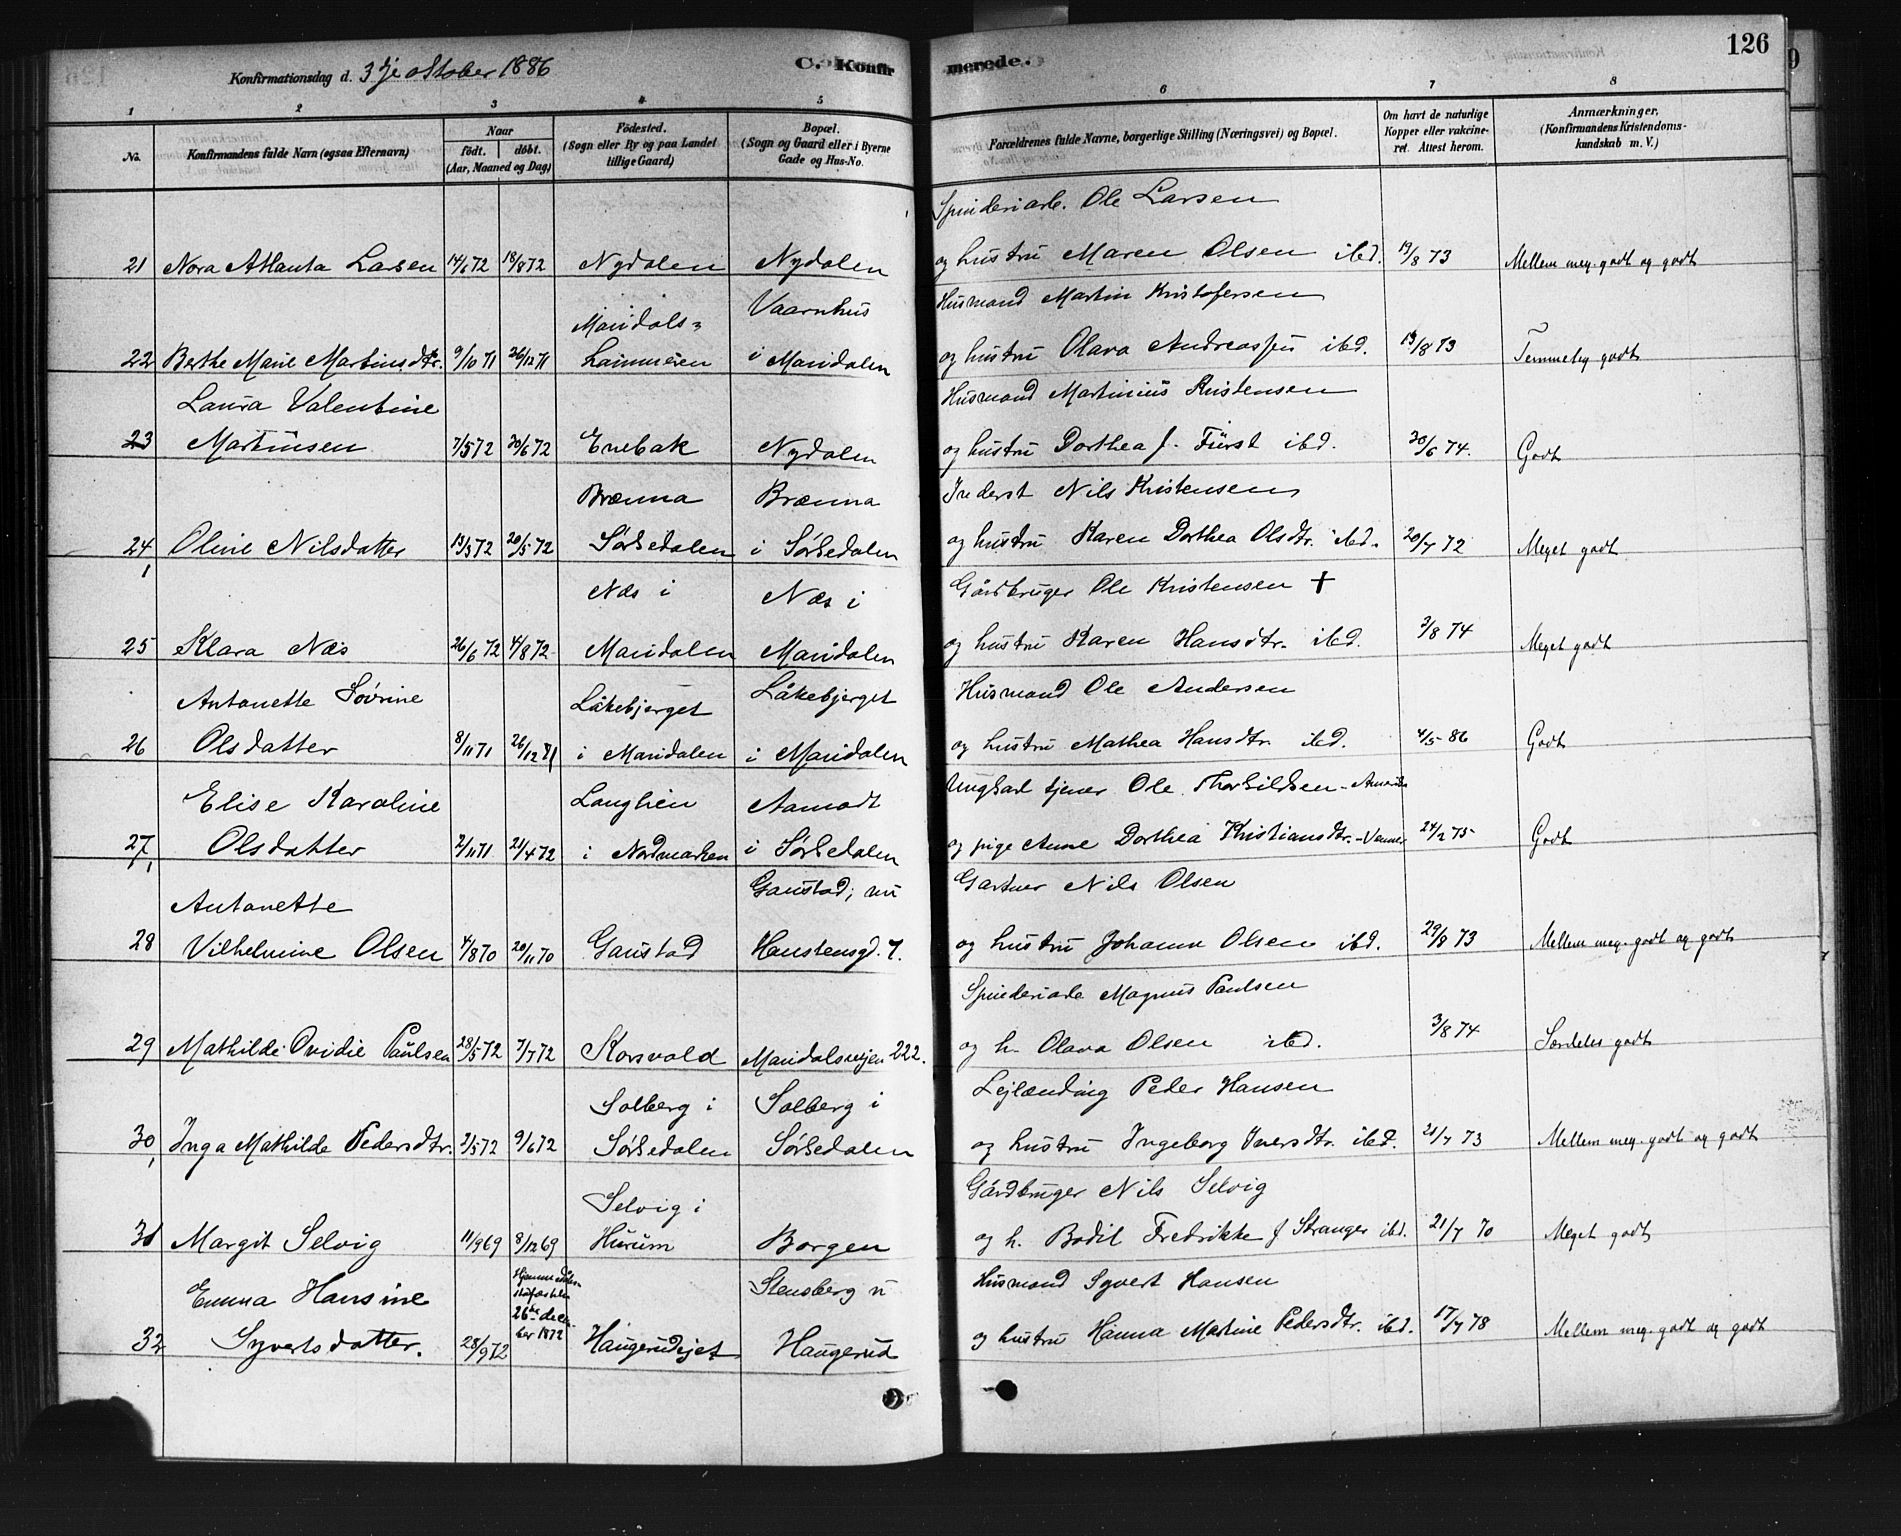 Konfirmationsdag d. 3dje oktober 1886
C. Konfirmerede.
126
1 2 3 4 5 6 7 8
No. Konfirmandens fulde Navn (ogsaa Efternavn) Naar født. døbt. (Aar, Maaned og Dag) Fødested. (Sogn eller By og paa Landet tillige Gaard) Bopæl. (Sogn og Gaard eller i Byerne Gade og Hus-No. Forældrenes fulde Navne, borgerlige Stilling (Næringsvei) og Bopæl. Om havt de naturlige Kopper eller vakcineret. Attest herom. Anmærkninger. (Konfirmandens Kristendomskundskab m. V.)
Spinderiarb. Ole Larsen
21 Nora Atlanta Larsen 14/6 72 18/8 72 Nydalen Nydalen og hustru Maren Olsen ibd. 19/8 73 Mellem meg. godt og godt
Maridals- Vaarnhus Husmand Martin Kristofersen
22 Berthe Marie Martinsdtr. 9/10 71 26/12 71 hammeren i Maridalen og hustru Olava Andreassen ibd. 19/8 73 Temmelig godt
Laura Valentine Husmand Martinius Kristensen
23 Martinsen 7/5 72 30/6 72 Enebak Nydalen og hustru Dorthea f. Fürst ibd. 30/6 74. Godt
Brænna Brænna Inderst Nils Kristensen
24 Oline Nilsdatter 13/3 72 20/5 72 Sørkedalen i Sørkedalen og hustru Karen Dorthea Olsdtr. ibd. 20/7 72 Meget godt
Næs i Næs i Gårdbruger Ole Kristensen +
25 Klara Næs 26/6 72 4/8 72 Maridalen Maridalen og hustru Karen Hansdtr. ibd. 3/8 74 Meget godt
Antonette Sovrine Låkebjerget Låkebjerget Husmand Ole Andersen
26 Olsdatter 8/11 71 26/12 71 i Maridalen i Maridalen og hustru Mathea Hansdtr. ibd. 4/5 86 Godt
Elise Karoline Langlien Aamodt Ungkarl tjener Ole Thorkildsen
27 Olsdatter 2/11 71 21/4 72 i Nordmarken i Sørkedalen og pige Anne Dorthea Kristiansdtr. 24/2 75 Godt
Antonette Gaustad, nu Gartner Nils Olsen
28 Vilhelmine Olsen 4/8 70 20/11 70 Gaustad Hanstensgd. 7. og hustru Johanne Olsen ibd. 29/8 73 Mellem meg. godt og godt
Spinderiarb Magnus Paulsen
29 Mathilde Ovidie Paulsen 28/5 72 7/7 72 Korsvold Maridalsvejen 222. og h. Olava Olsen ibd. 3/8 74 Særdeles godt
Solberg i Solberg i Lejlænding Peder Hansen
30 Inga Mathilde Pedersdtr. 2/5 72 9/6 72 Sørkedalen Sørkedalen og hustru Ingeborg Iversdtr. ibd. 21/7 73 Mellem meg. godt og godt
Selvig i Gårdbruger Nils Selvig
31 Margit Selvig 11/9 69 8/12 69 Hurum Borgen og h. Bodil Fredrikke f Stranger ibd. 21/7 70 Meget godt
Emma Hansine Hjemmedåben stadfæstelse 26de december 1872 Stensberg u Husmand Syvert Hansen
32 Syvertsdatter. 28/9 72 Haugerudejet Haugerud og hustru Hanna Martine Pedersdtr. ibd. 17/7 78 Mellem meg. godt og godt